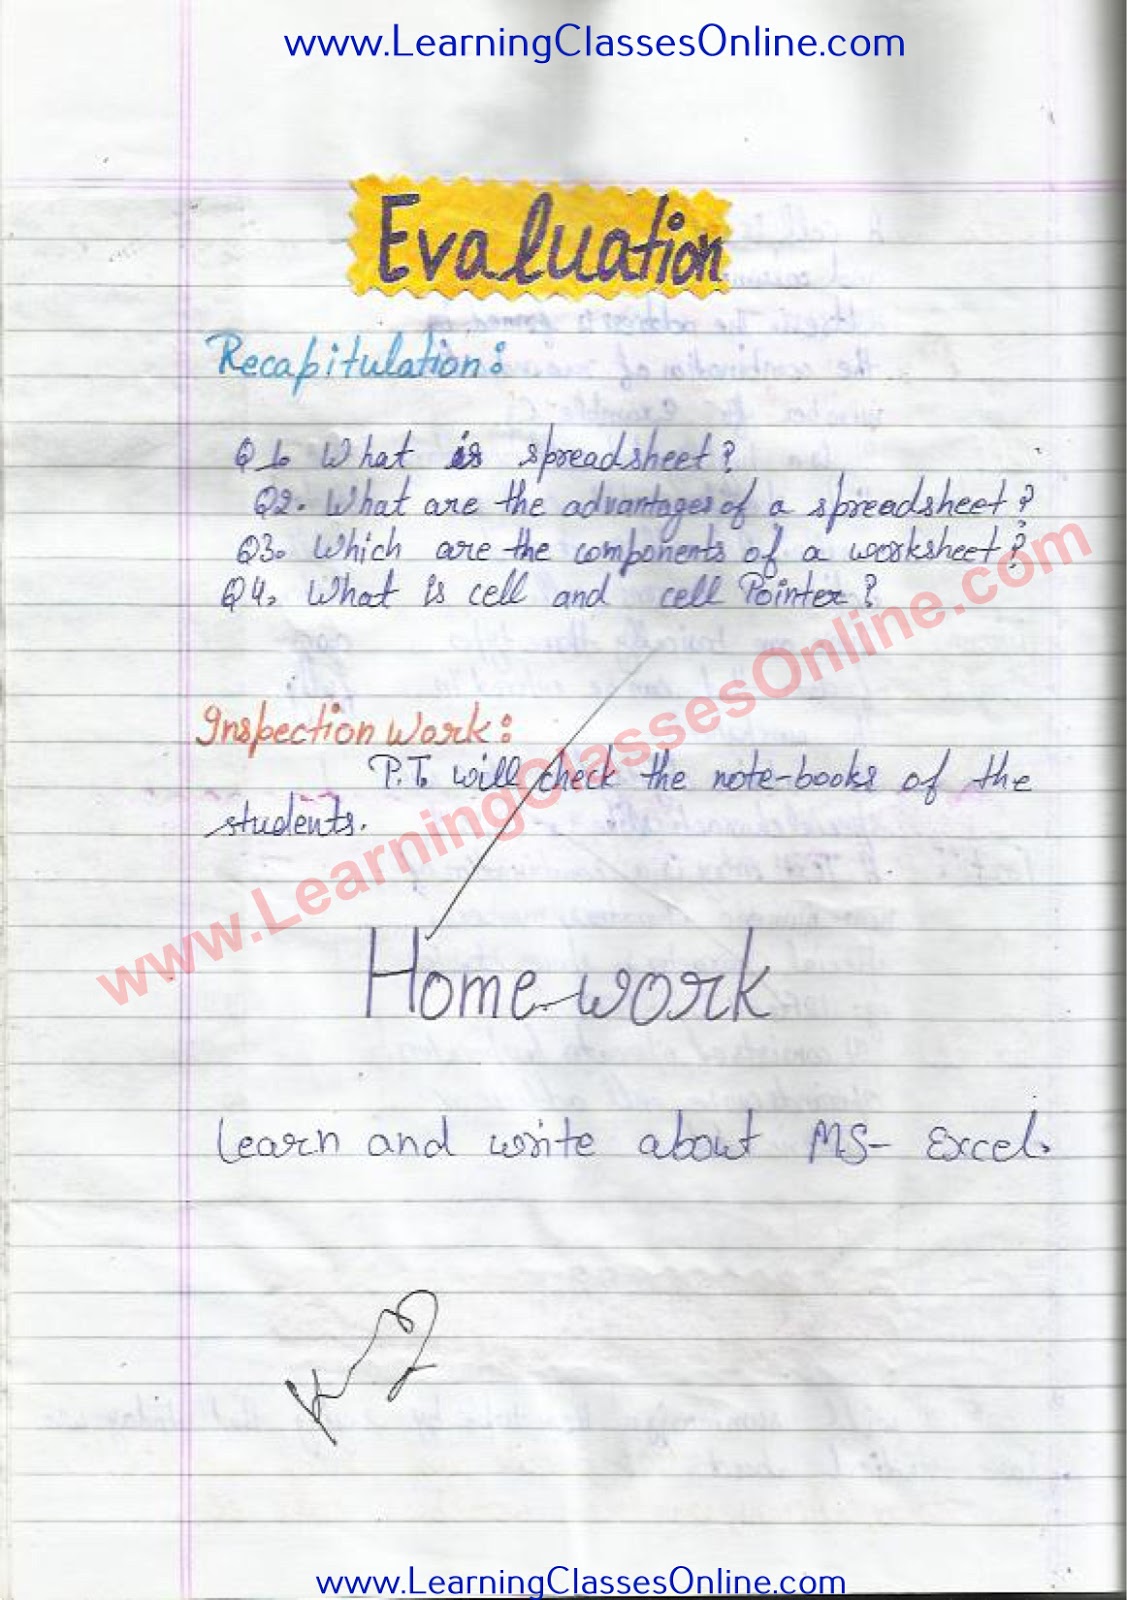 www.LearningClassesOnline.com
Evaluation
Recapitulation:
Q1. What is spreadsheet?
Q2. What are the advantages of a spreadsheet?
Q3. Which are the components of a worksheet?
Q4. What is cell and cell Pointer?
Inspection Work:
P.T. will check the note-books of the
students.
www.LearningClassesOnline.com
Home-work
Learn and write about MS-Excel.
www.LearningClassesOnline.com